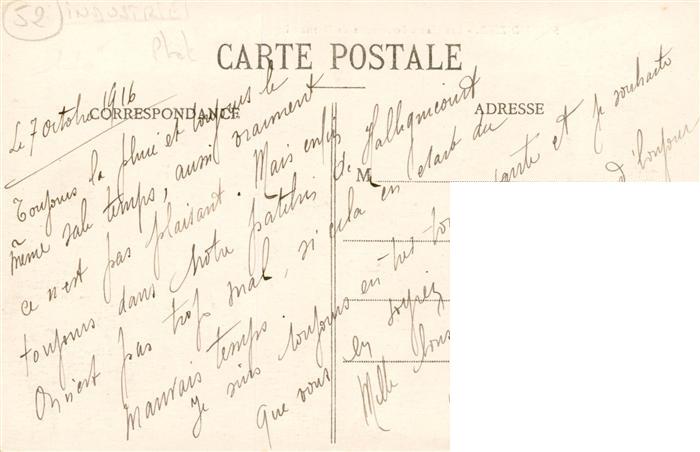 52
INDUSTRIE
Phot
CARTE POSTALE
CORRESPONDANCE
ADRESSE
M
Le 7 octobre 1916
Toujours la pluie et toujours le
même sale temps, aussi vraiment
ce n'est pas plaisant. Mais enfin
toujours dans notre patelin de Hallignicourt
On n'est pas trop mal, si cela en était du
mauvais temps.
Je suis toujours en très bonne santé et je souhaite
que vous en soyiez
Mille bons d'bonjour